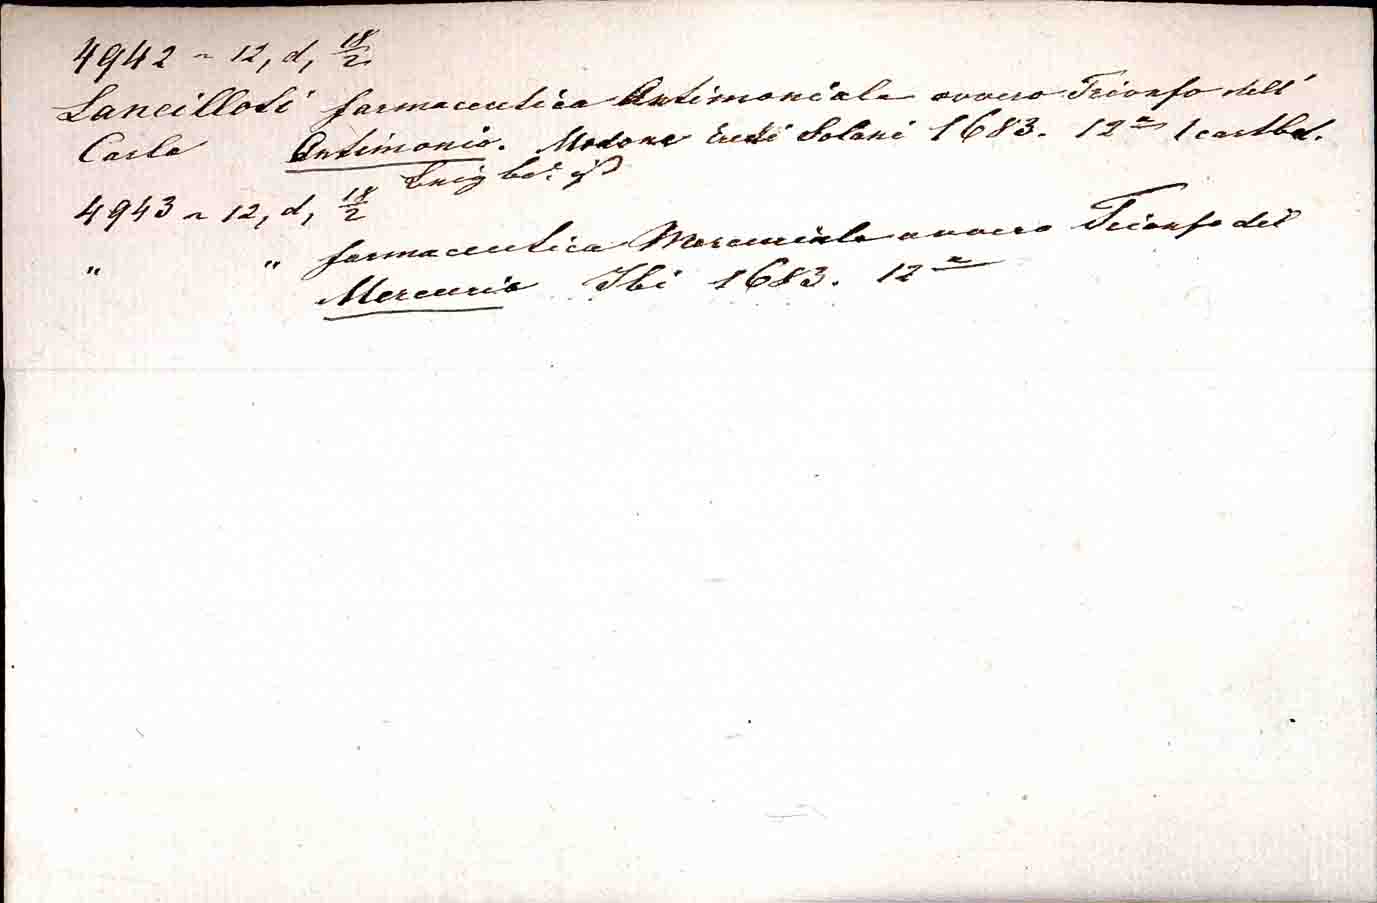 4942 ~ 12, d, 18/2
Lancilloti farmaceutica Antimoniale ovvero Trionfo dell'
Carlo Antimonio. Modona Eredi Solani 1683. 12º 1 cartbd.
4943 ~ 12, d, 18/2
" " farmaceutica Mercuriale ovvero Trionfo del
Mercurio Ibi 1683. 12º